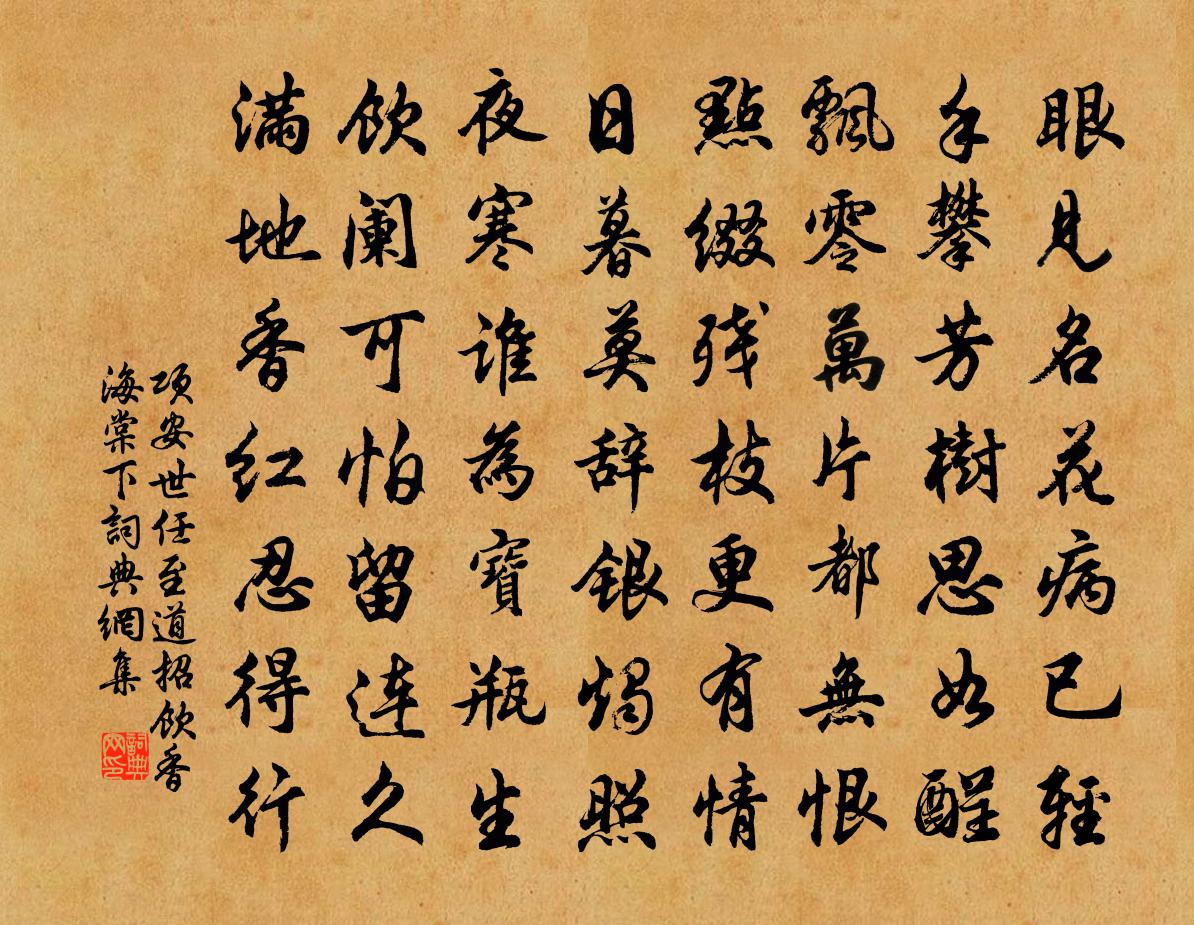 眼見名花病已輕
手攀芳樹思如醒
飄零萬片都無恨
點綴残枝更有情
日暮莫辞銀燭照
夜寒誰為寶瓶生
飲阑可怕留连久
满地香红忍得行
项安世任至道招飲香
海棠下詞典網集
詞典
网印